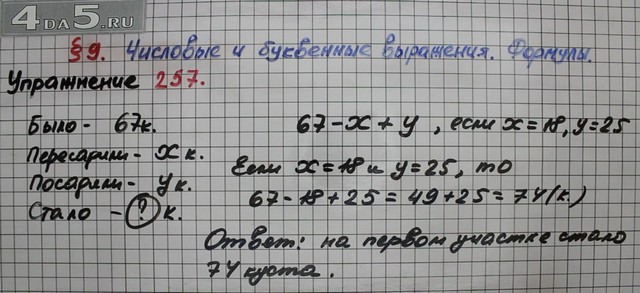 4DA5.RU
§9. Числовые и буквенные выражения. Формулы.
Упражнение 257.
Было - 67к.
Пересадили - x к.
Посадили - y к.
Стало - ? к.
67 - x + y , если x = 18, y = 25
Если x = 18 и y = 25, то
67 - 18 + 25 = 49 + 25 = 74 (к.)
Ответ: на первом участке стало
74 куста.